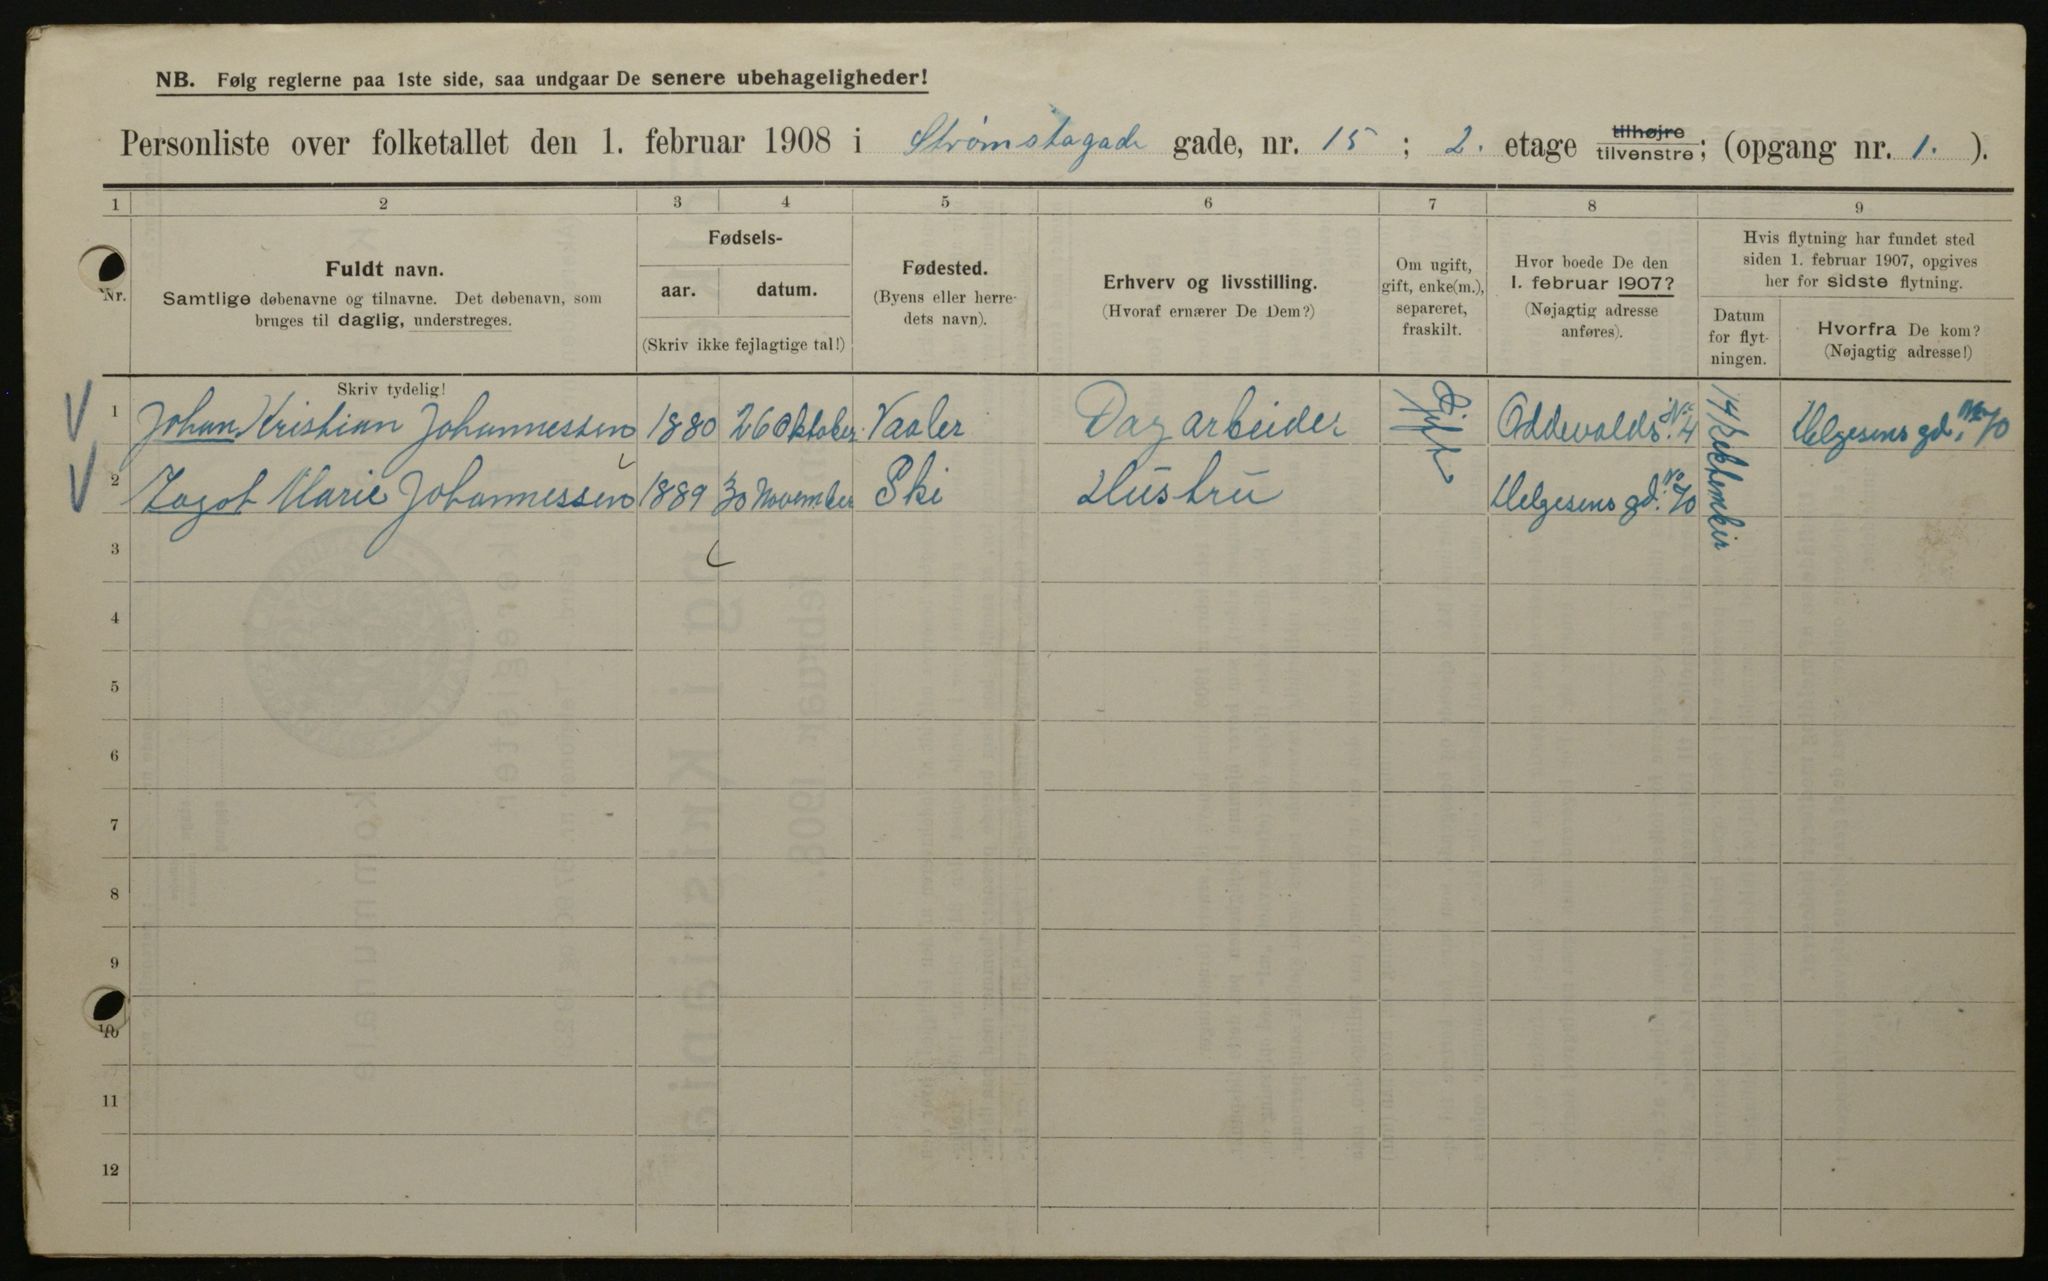 NB. Følg reglerne paa 1ste side, saa undgaar De senere ubehageligheder!
Personliste over folketallet den 1. februar 1908 i Strømstagade gade, nr. 15 ; 2. etage tilhøjre tilvenstre; (opgang nr. 1. ).
1 2 3 4 5 6 7 8 9
Nr.
Fuldt navn.
Samtlige døbenavne og tilnavne. Det døbenavn, som
bruges til daglig, understreges.
Skriv tydelig!
Fødsels-
aar. datum.
(Skriv ikke fejlagtige tal!)
Fødested.
(Byens eller herre-
dets navn).
Erhverv og livsstilling.
(Hvoraf ernærer De Dem?)
Om ugift,
gift, enke(m.),
separeret,
fraskilt.
Hvor boede De den
1. februar 1907?
(Nøjagtig adresse
anføres).
Hvis flytning har fundet sted
siden 1. februar 1907, opgives
her for sidste flytning.
Datum
for flyt-
ningen.
Hvorfra De kom?
(Nøjagtig adresse!)
1 Johan Kristian Johannessen 1880 26 Oktober Vaaler Dagarbeider Gift Oddevalds. No 4 Helgesens gd. No 70
2 Marie Johannessen 1889 30 November Ski Hustru Helgesens gd. No 70
3
4
5
6
7
8
9
10
11
12